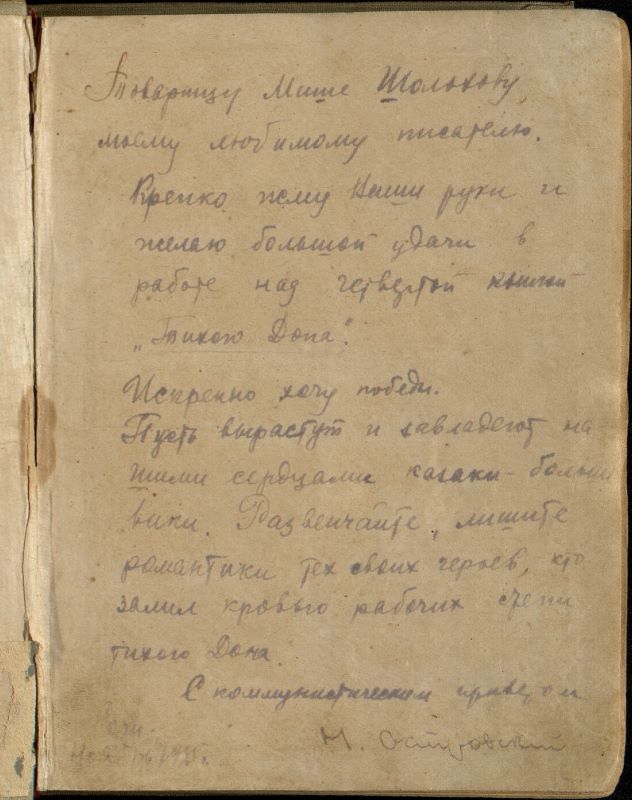 Товарищу Мише Шолохову,
моему любимому писателю.
Крепко жму Ваши руки и
желаю большой удачи в
работе над четвертой книгой
„Тихого Дона".
Искренно хочу победы.
Пусть вырастут и завладеют на-
шими сердцами казаки - больше
вики. Развенчайте, лишите
романтики тех своих героев, кто
залил кровью рабочих степи
тихого Дона.
С коммунистическим приветом
Н. Островский
Сочи.